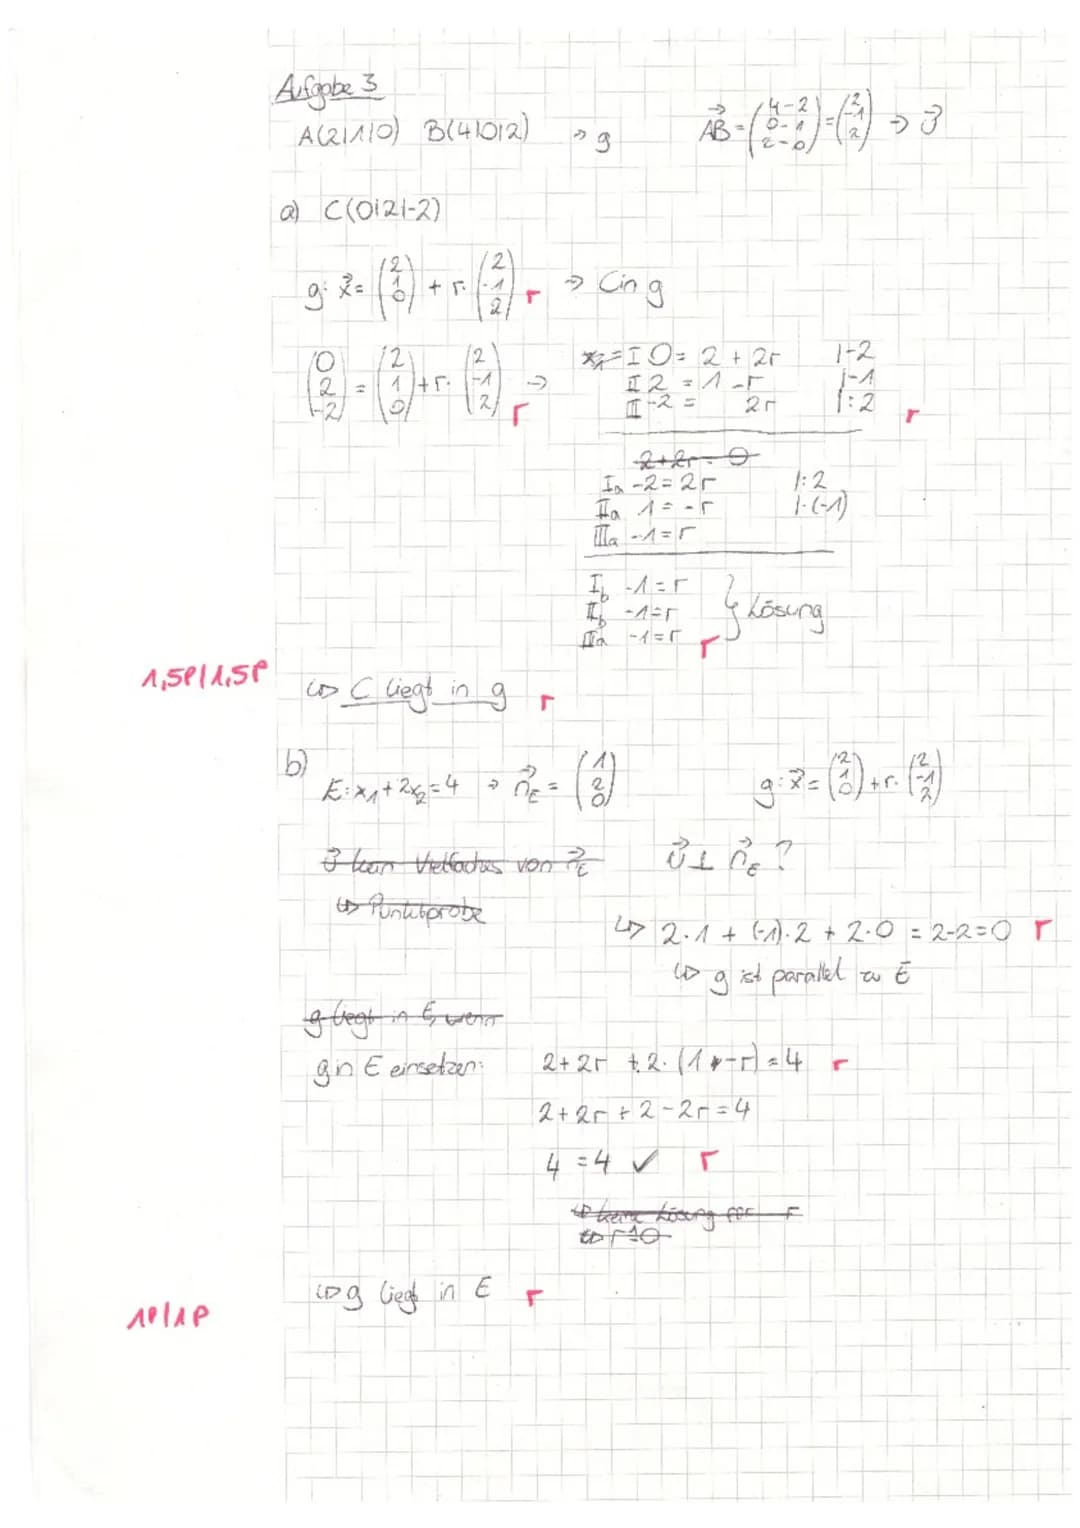 Aufgabe 3
A(2|1|0) B(4|0|2) → g
AB⃗ = (4-2 / 0-1 / 2-0) = (2 / -1 / 2) → v⃗
a) C(0|2|-2)
g: x⃗ = (2 / 1 / 0) + r · (2 / -1 / 2) r → C in g
(0 / 2 / -2) = (2 / 1 / 0) + r · (2 / -1 / 2) → r
I 0 = 2 + 2r |-2
II 2 = 1 - r |-1
III -2 = 2r |:2 r
2+2r = 0
Ia -2 = 2r |:2
IIa 1 = -r |·(-1)
IIIa -1 = r
Ib -1 = r
IIb -1 = r } Lösung
IIIa -1 = r r
1,5P/1,5P
↳ C liegt in g r
b)
E: x₁ + 2x₂ = 4 → n⃗E = (1 / 2 / 0)
g: x⃗ = (2 / 1 / 0) + r · (2 / -1 / 2)
v⃗ kein Vielfaches von n⃗E
v⃗ ⊥ n⃗E ?
↳ Punktprobe
↳ 2·1 + (-1)·2 + 2·0 = 2-2=0 r
↳ g ist parallel zu E
g liegt in E, wenn
g in E einsetzen: 2+2r + 2·(1-r) = 4 r
2+2r + 2 - 2r = 4
4 = 4 ✓ r
↳ keine Lösung für r
↳ g liegt in E r
1P/1P